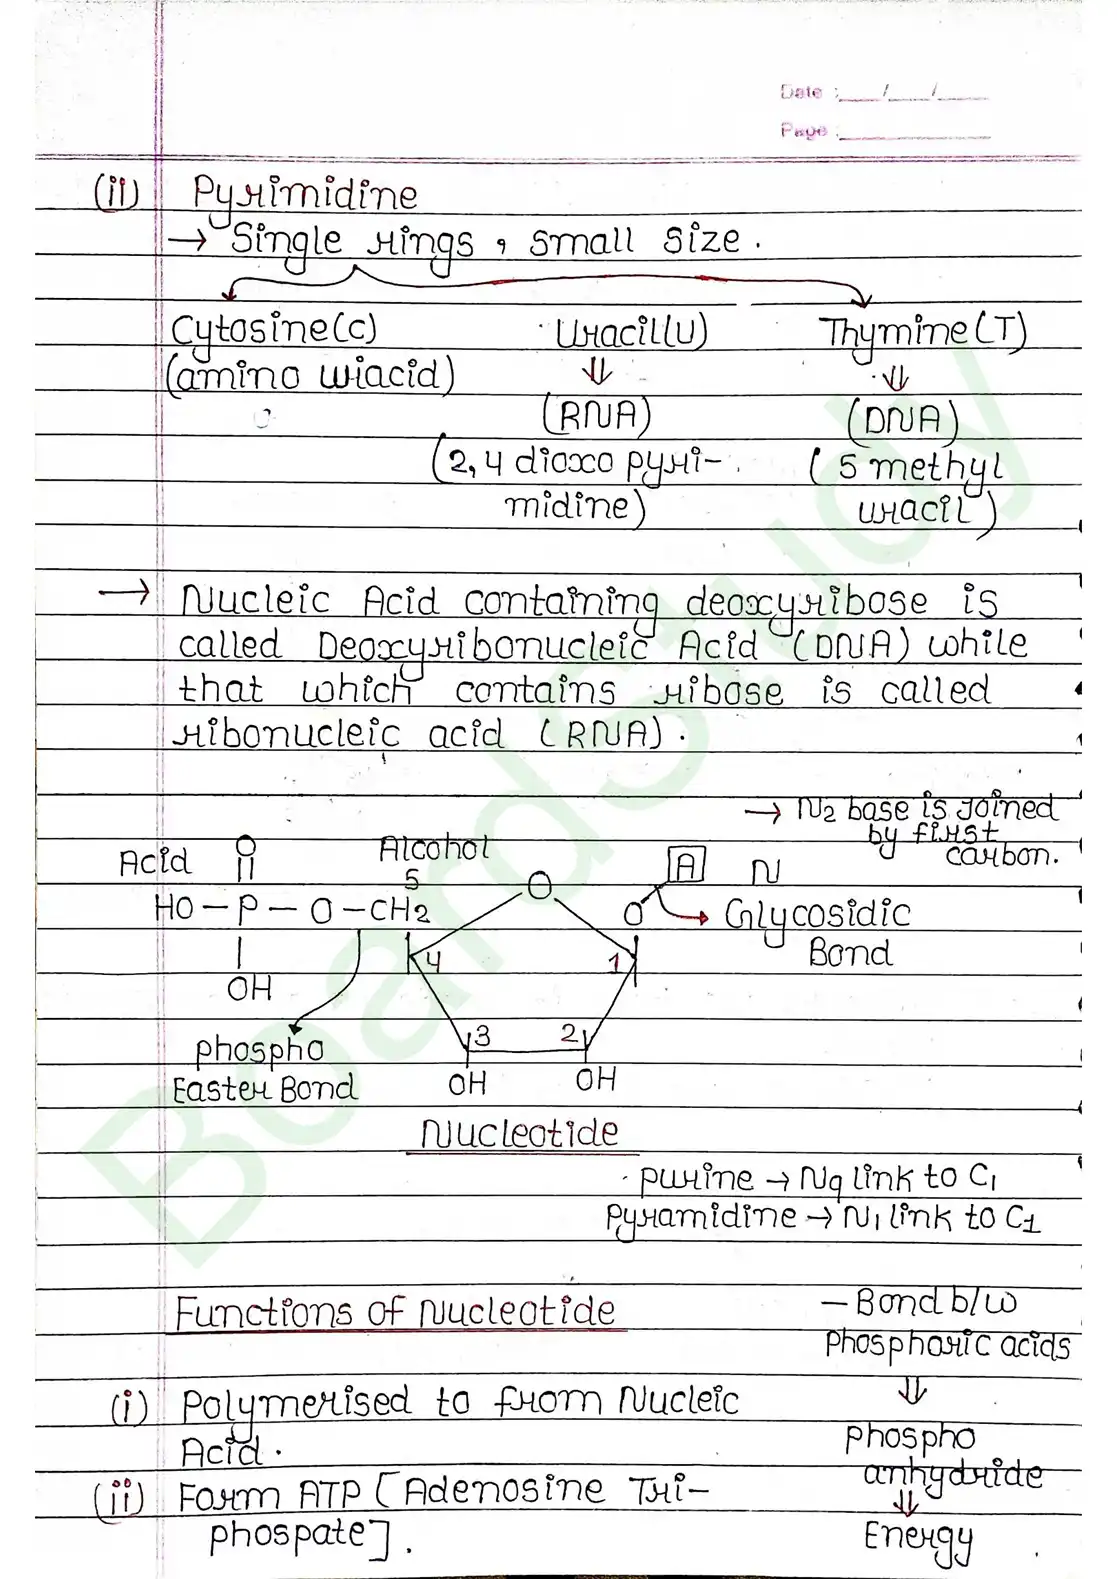 Date :___/___/____
Page :____________
(ii) Pyrimidine
→ Single rings, small size.
Cytosine(c) Uracil(u) Thymine(T)
(amino wiacid) ⇓ ⇓
(RNA) (DNA)
(2,4 dioxo pyri- (5 methyl
midine) uracil)
→ Nucleic Acid containing deoxyribose is
called Deoxyribonucleic Acid (DNA) while
that which contains ribose is called
ribonucleic acid (RNA).
→ N2 base is Joined
by first
carbon.
Acid O Alcohol A N
5 O
HO – P – O – CH2 O Glycosidic
Bond
4 1
OH
3 2
phospho
Easter Bond OH OH
Nucleotide
purine → N9 link to C1
Pyramidine → N1 link to C1
Functions of Nucleotide
– Bond b/w
Phosphoric acids
⇓
(i) Polymerised to from Nucleic
Acid.
Phospho
anhydride
(ii) Form ATP [Adenosine Tri-
phospate].
⇓
Energy
BoardStudy